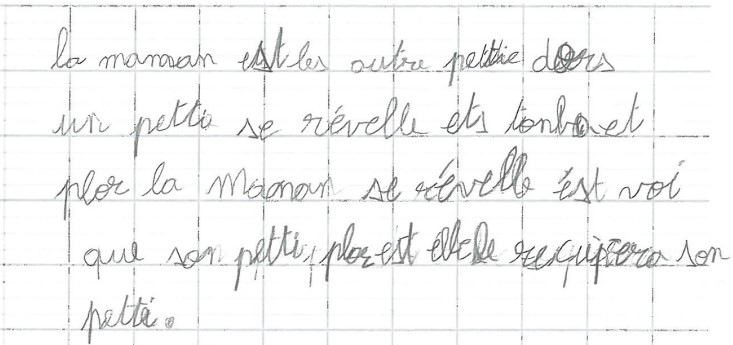 la maman est les outre pettie dors
un petti se révelle ets tonbe et
plor la maman se révelle ést voi
que son petti plor est elle le requpera son
petti.